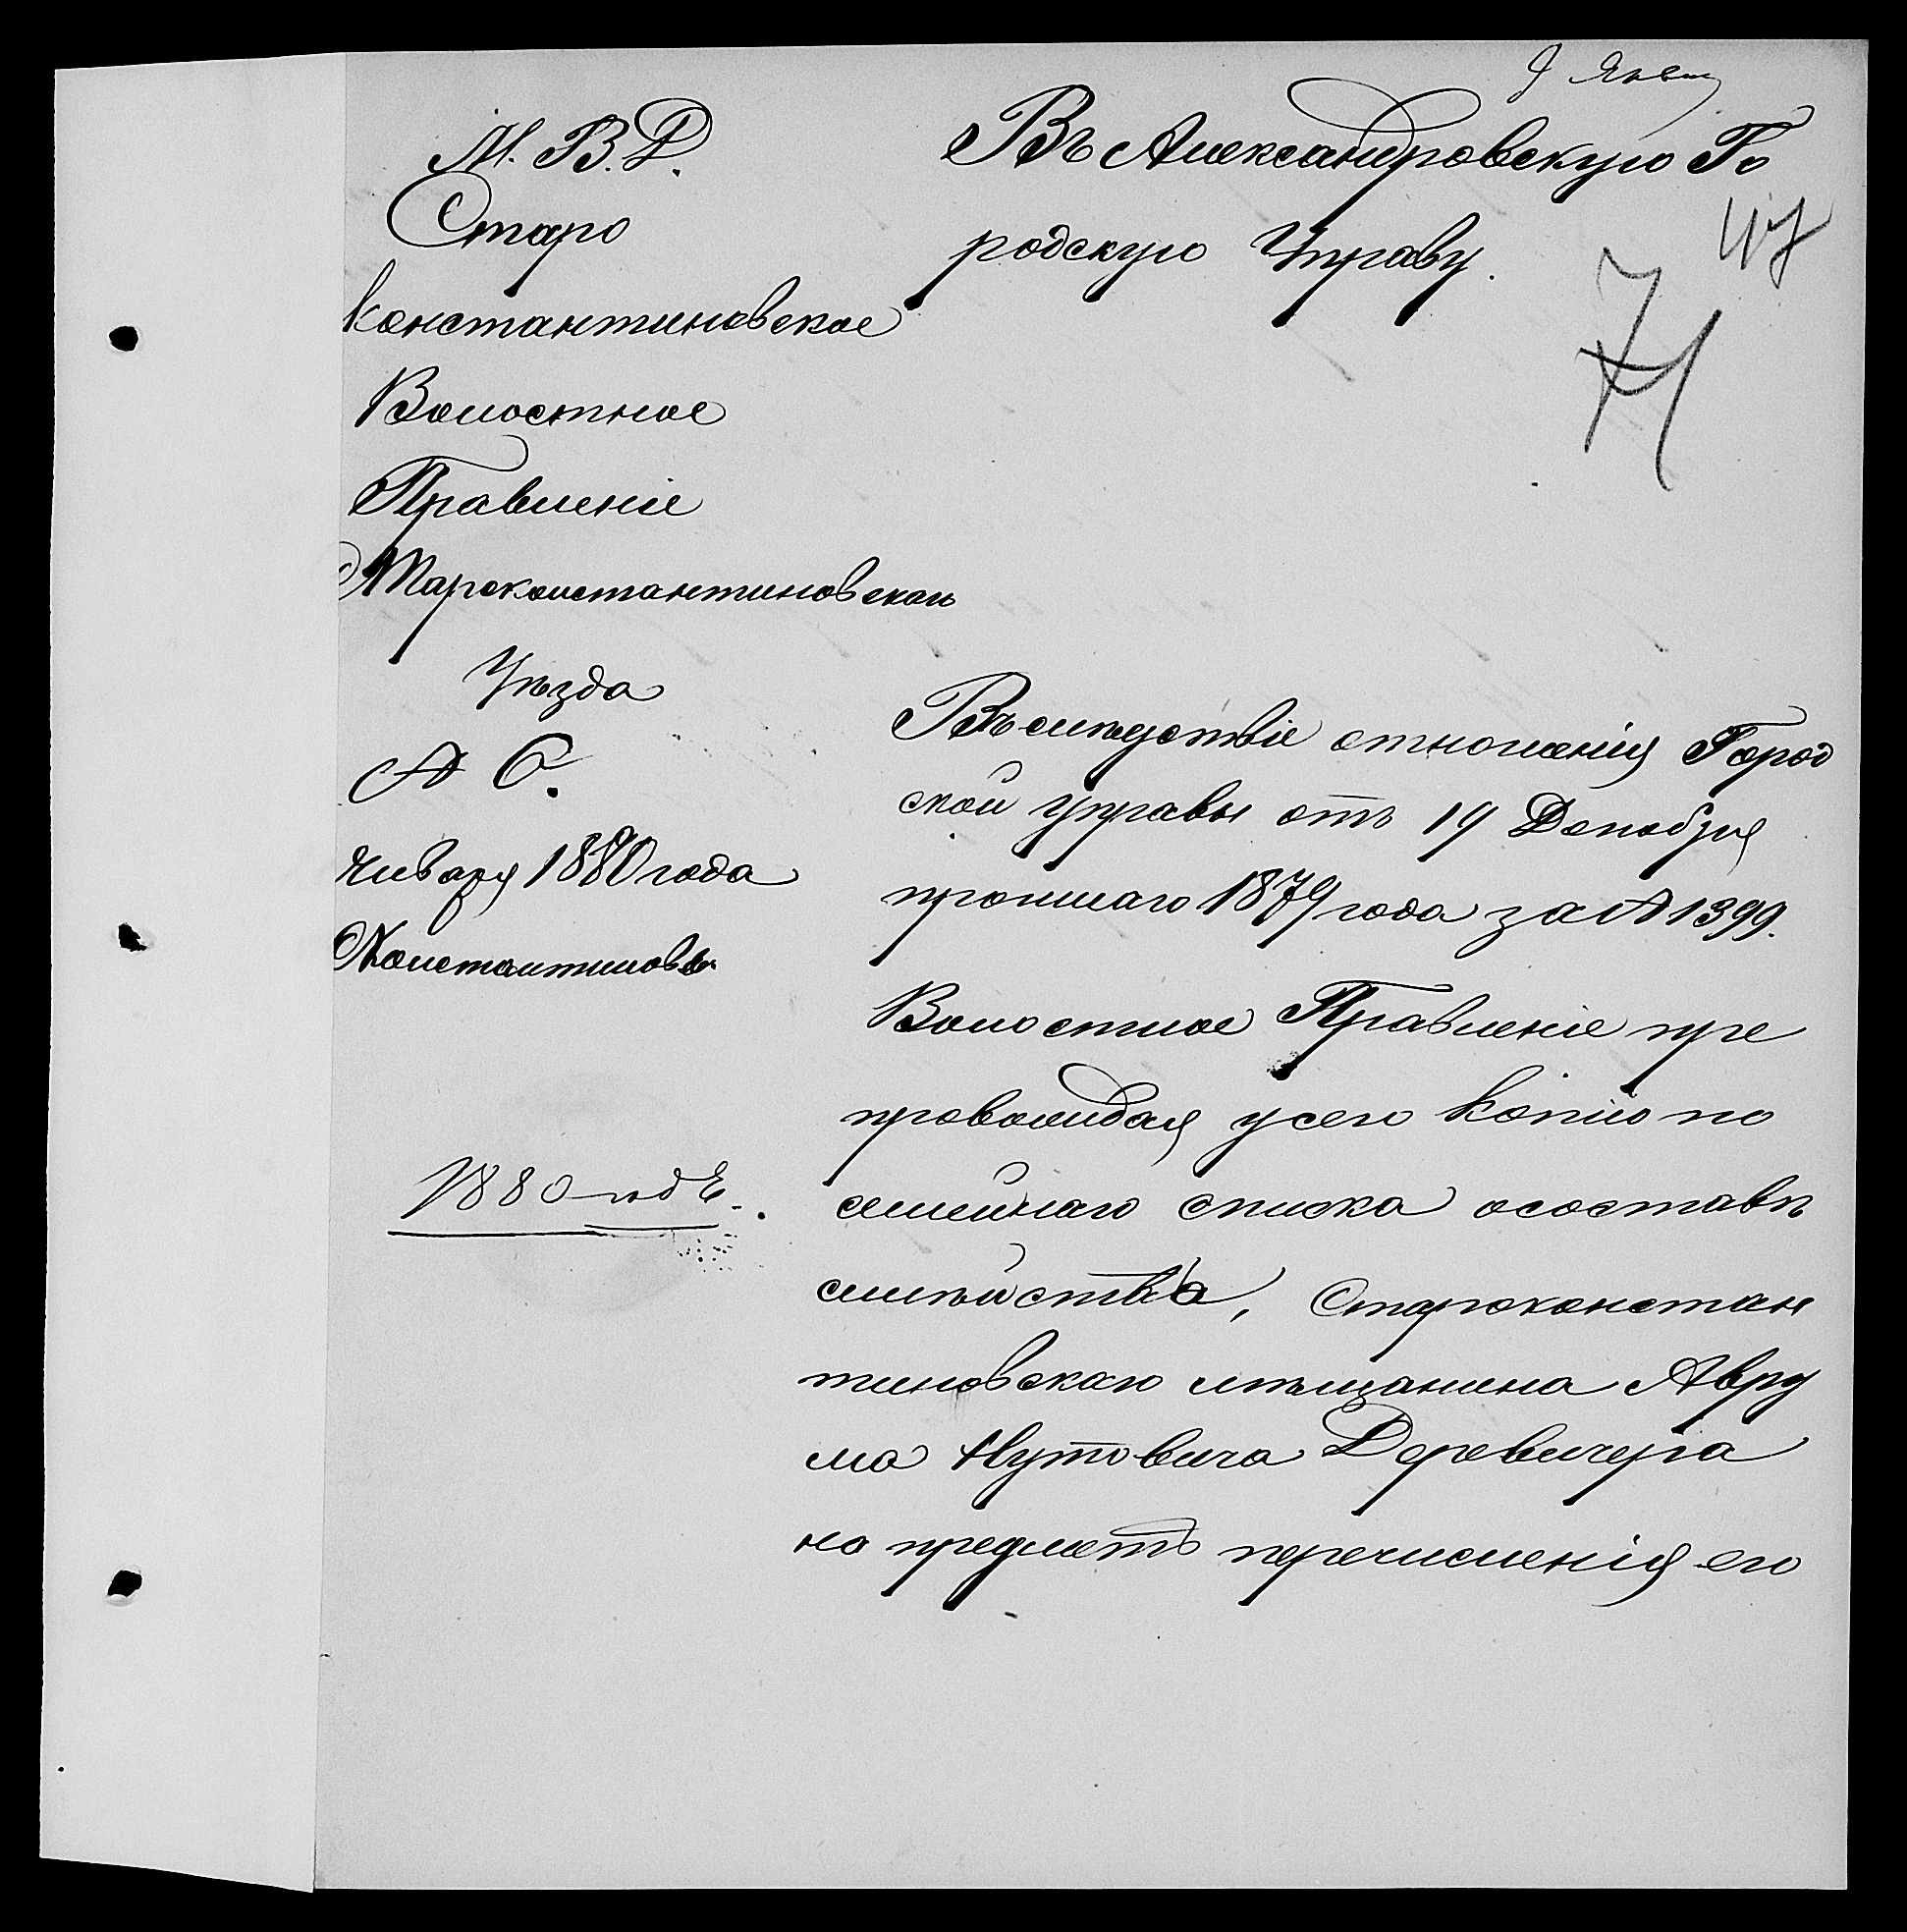 М. В. Д.
Старо
константиновское
Волостное
Правленіе
Староконстантиновскаго
Уѣзда
№ 6.
Января 1880 года
Константиновъ
1880 годъ
9 Янв
Въ Александровскую Го
родскую Управу.
47
71
Въ слѣдствіе отношенія Город
ской управы отъ 19 Декабря
прошлаго 1879 года за № 1399.
Волостное Правленіе пре
провождая у сего копію по
семейнаго списка о составѣ
семѣйства, Староконстан
тиновскаго мѣщанина Авру
ма Нутовича Деревичера
на предметъ перечисленія его